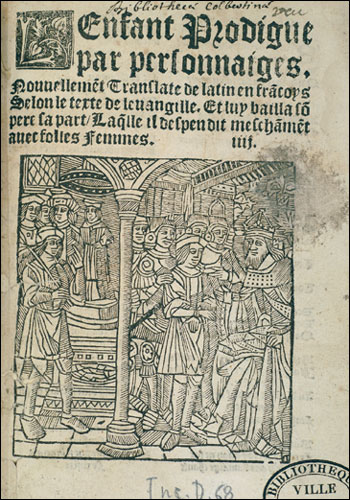 Bibliotheca Colbertina
LEnfant Prodigue
par personnaiges.
Nouuellemēt Translate de latin en frācoys
Selon le texte de leuangille. Et luy bailla sō
pere sa part / Laq̄lle il despendit meschāmēt
auec folles Femmes. iiij.
Inc. D. 68
BIBLIOTHEQUE
VILLE